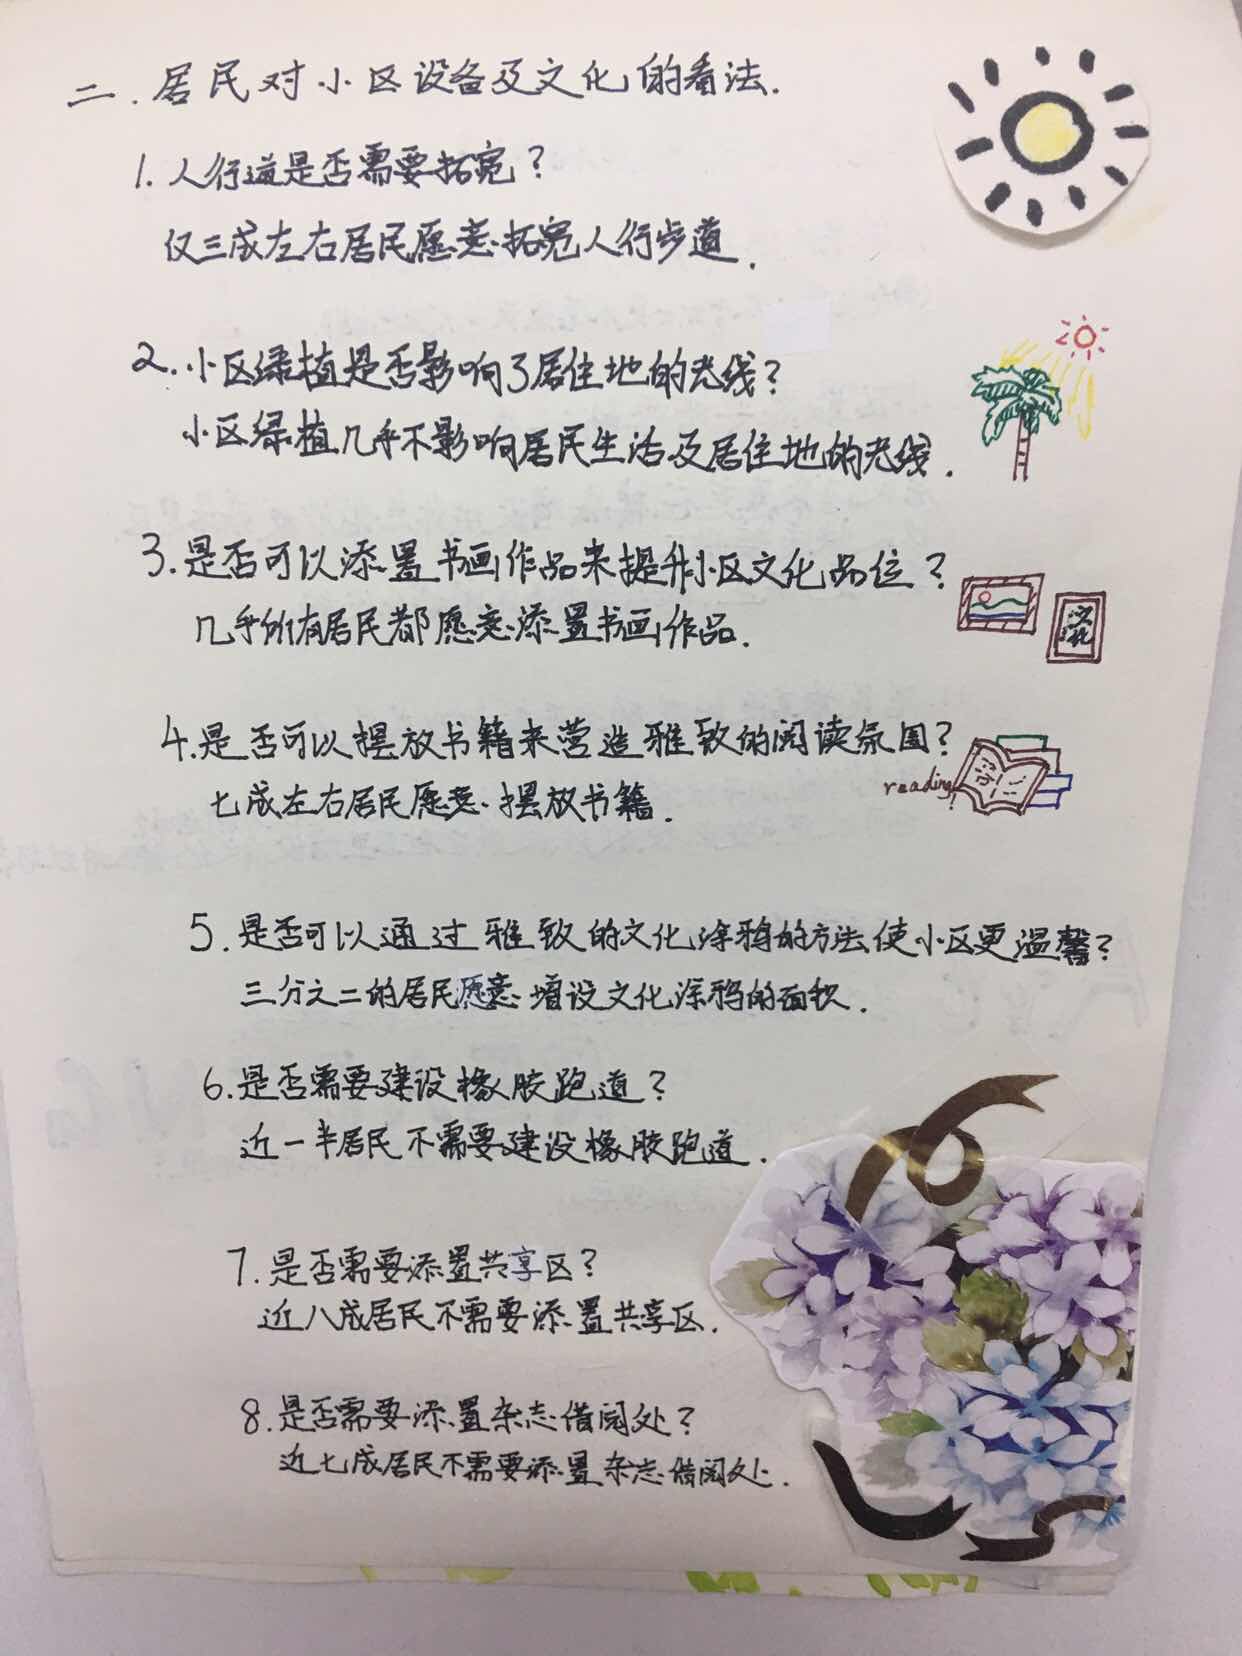 二.居民对小区设备及文化的看法.
1.人行道是否需要拓宽?
仅三成左右居民愿意拓宽人行步道.
2.小区绿植是否影响了居住地的光线?
小区绿植几乎不影响居民生活及居住地的光线.
3.是否可以添置书画作品来提升小区文化品位?
几乎所有居民都愿意添置书画作品.
文化
4.是否可以摆放书籍来营造雅致的阅读氛围?
reading
七成左右居民愿意摆放书籍.
5.是否可以通过雅致的文化涂鸦的方法使小区更温馨?
三分之二的居民愿意增设文化涂鸦的面积.
6.是否需要建设橡胶跑道?
近一半居民不需要建设橡胶跑道.
7.是否需要添置共享区?
近八成居民不需要添置共享区.
8.是否需要添置杂志借阅处?
近七成居民不需要添置杂志借阅处.